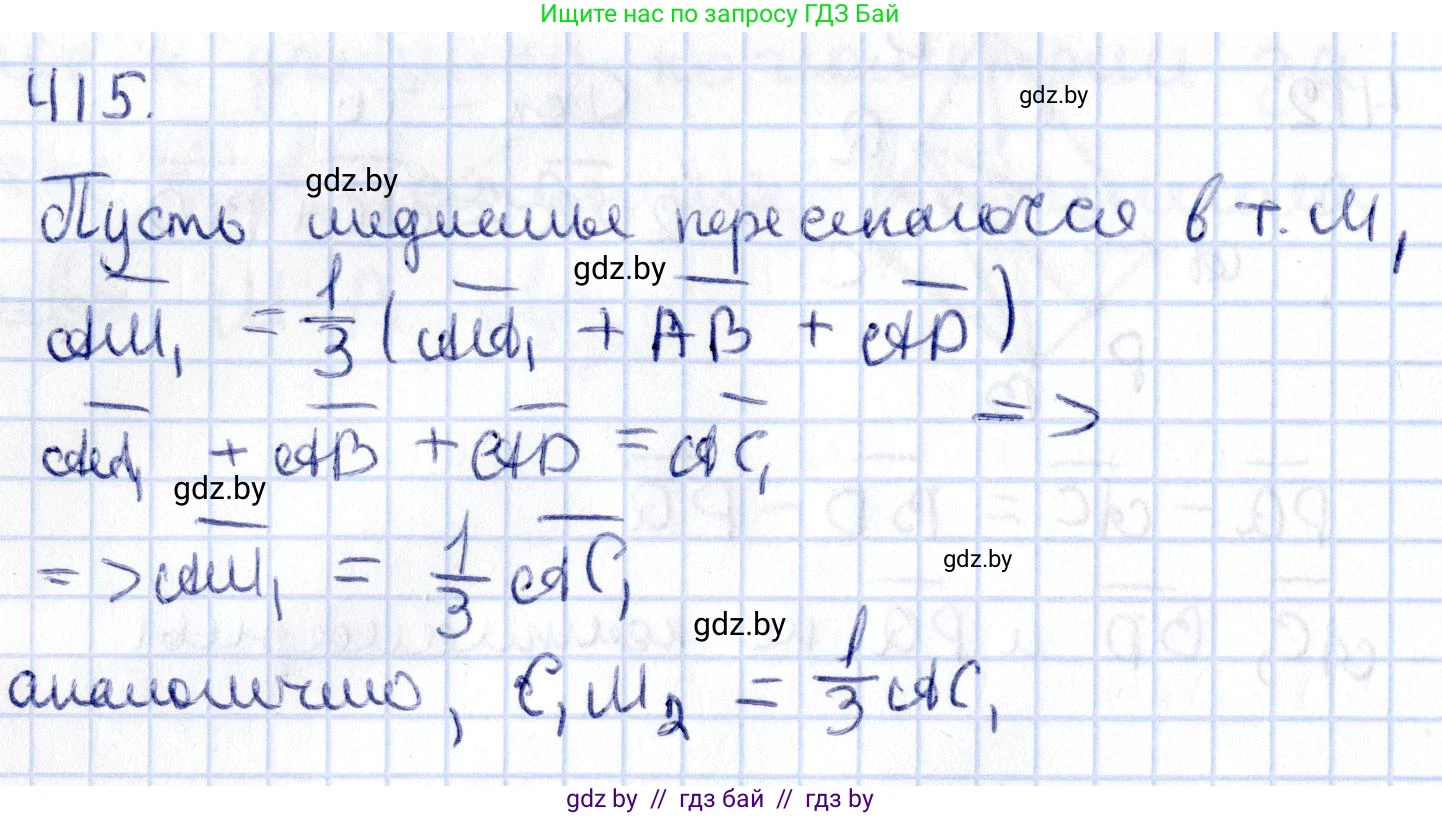 Ищите нас по запросу ГДЗ Бай
415.
gdz.by
gdz.by
Пусть медианы пересекаются в т. М,
gdz.by
AM₁ = 1/3 (AA₁ + AB + AD)
AA₁ + AB + AD = AC₁ =>
gdz.by
=> AM₁ = 1/3 AC₁
gdz.by
gdz.by
аналогично, C₁M₂ = 1/3 AC₁
gdz.by // гдз бай // гдз by